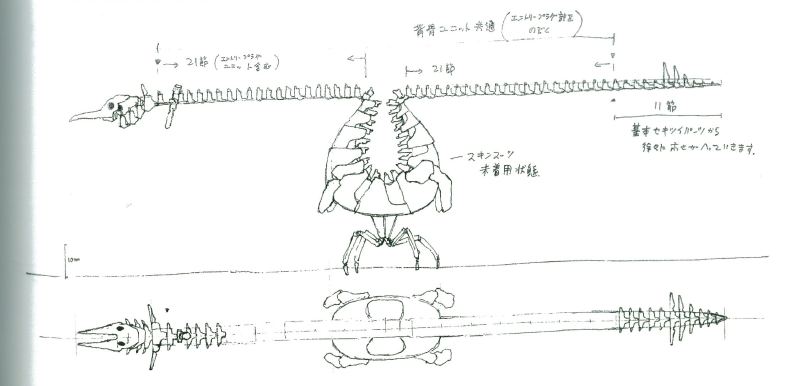 背骨ユニット共通(エントリープラグ部品のぞく)
→ 21節(エントリープラグユニット含む) ←
→ 21節 ←
11節
基本セキツイパーツから
徐々にホセがへっていきます。
スキンスーツ
未着用状態
10mm